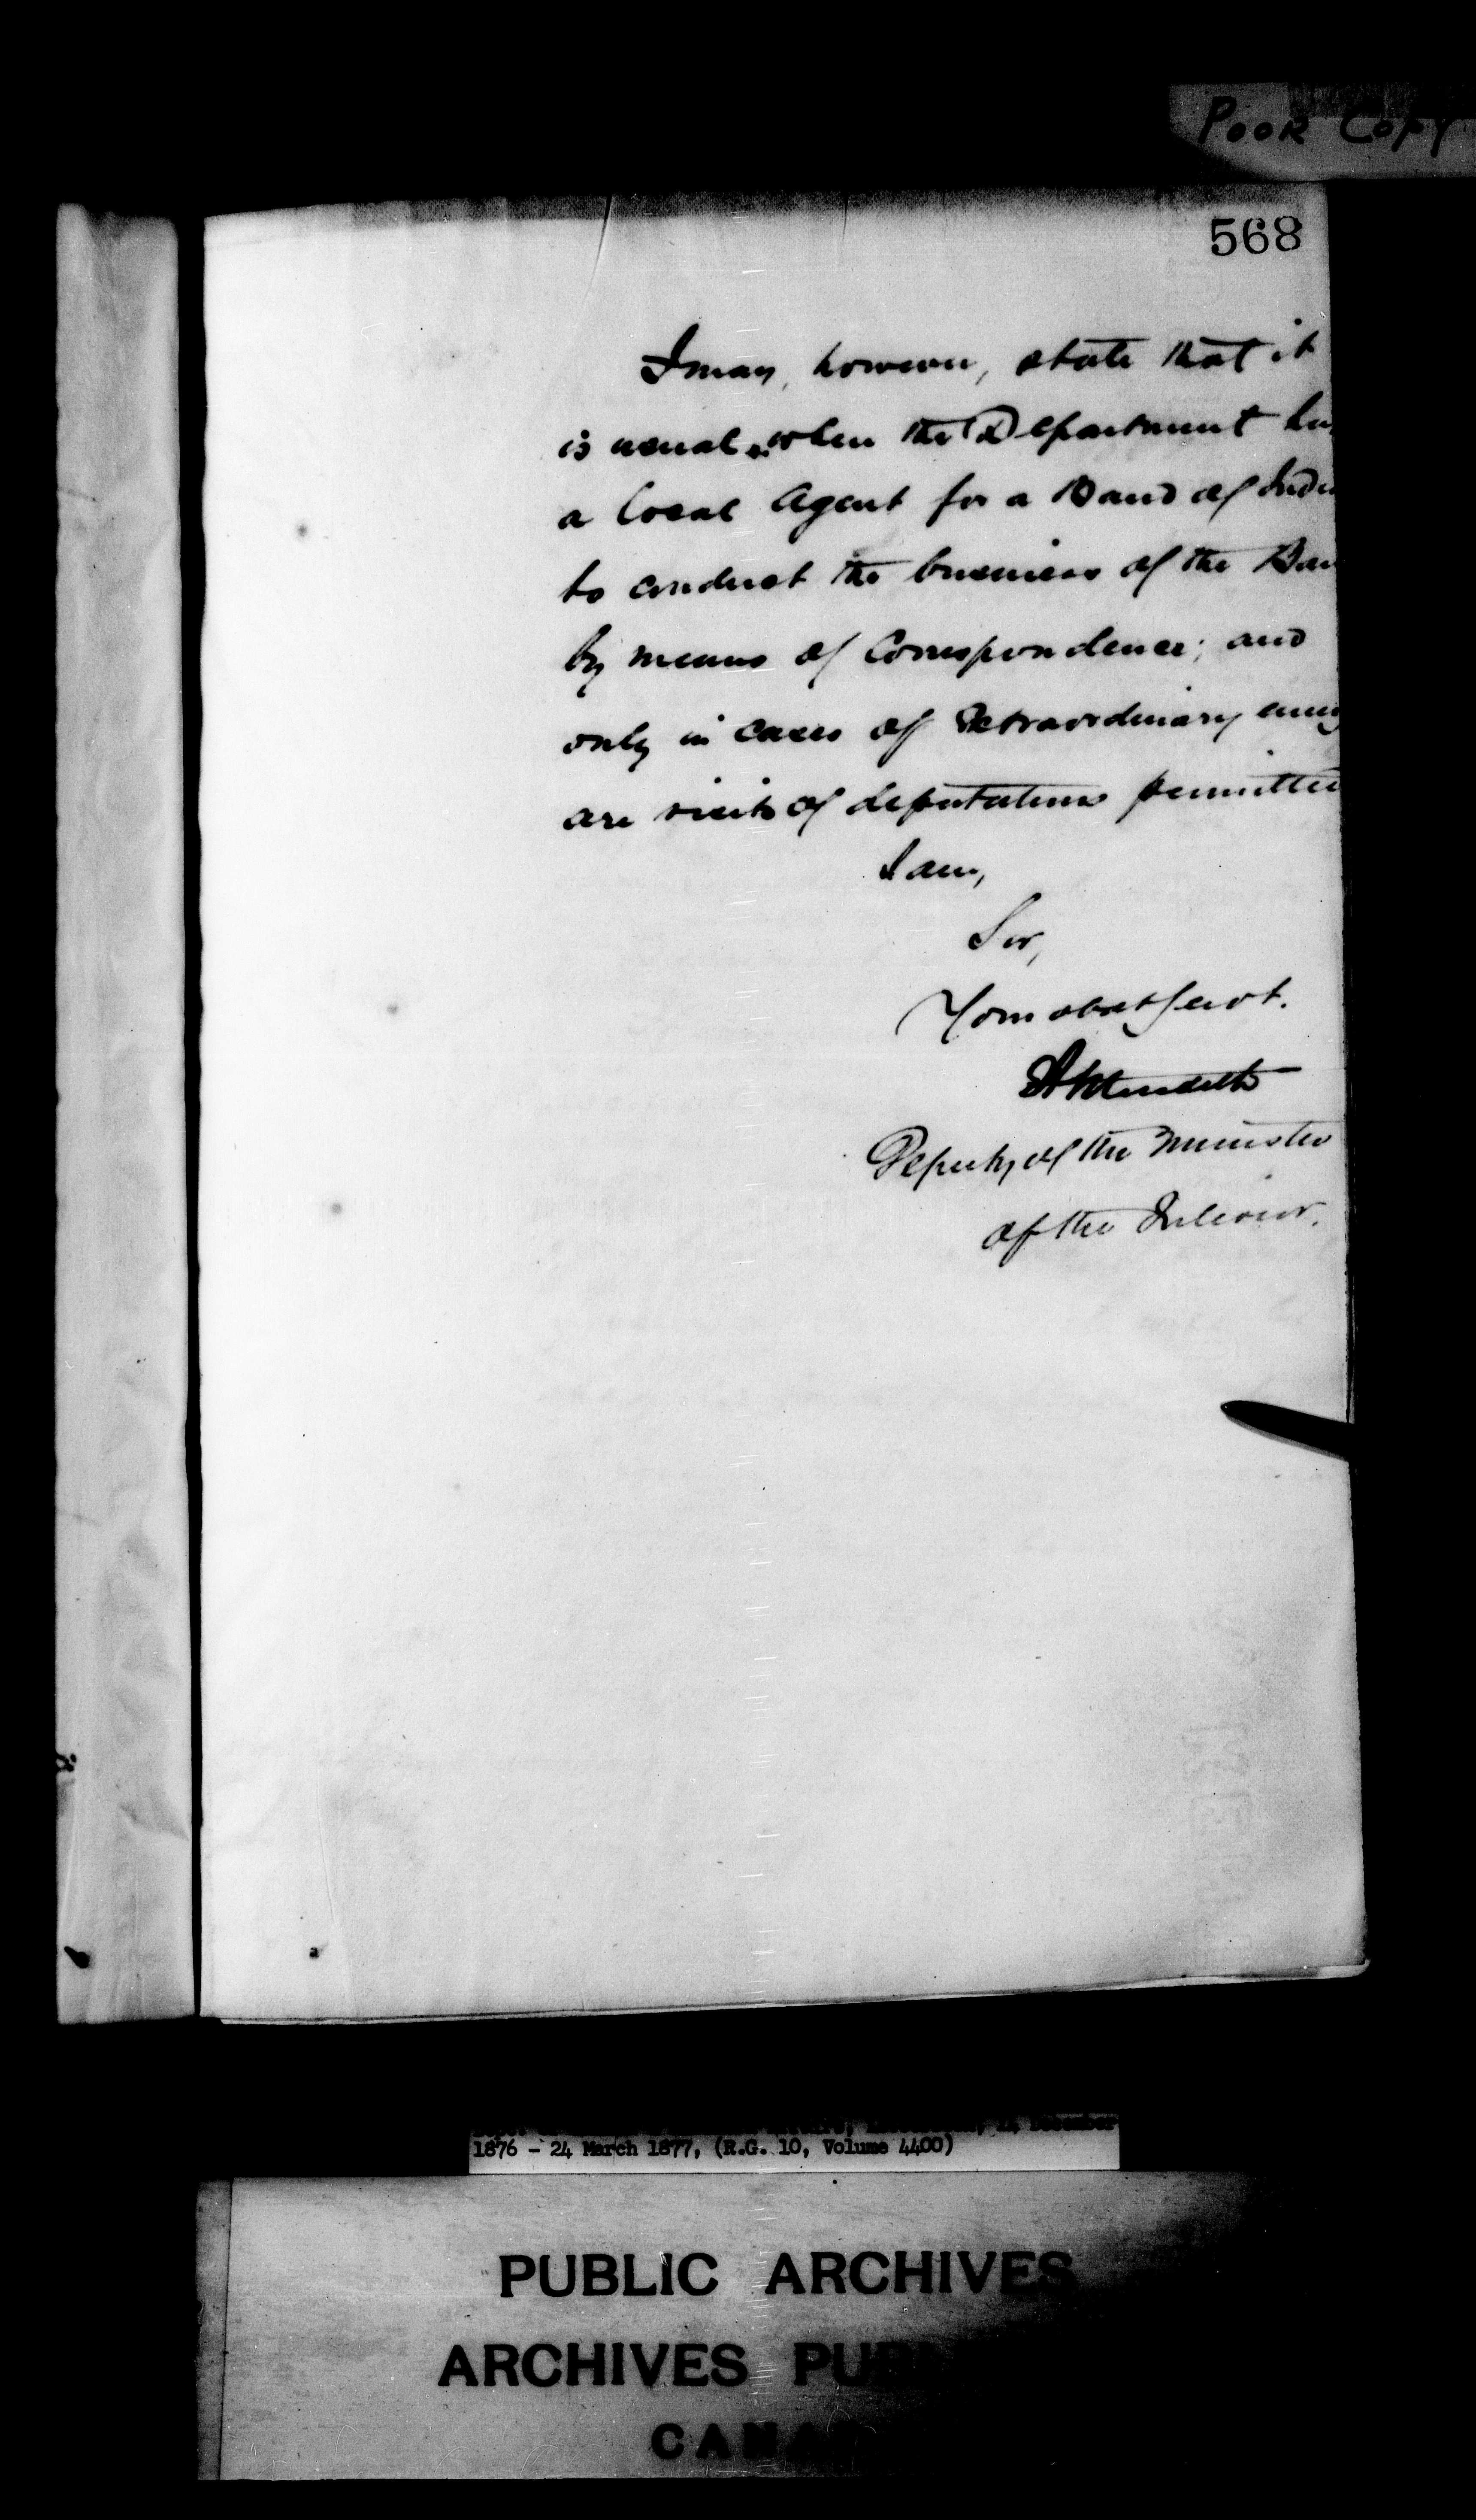 POOR COPY
568
I may, however, state that it
is usual, when the Department ha
a local Agent for a Band of India
to conduct the business of the Ban
by means of Correspondence; and
only in cases of extraordinary emerg
are visits of deputations permitted
I am,
Sir,
Your obedt Servt.
Meredith
Deputy of the Minister
of the Interior.
December
1876 - 24 March 1877, (R.G. 10, Volume 4400)
PUBLIC ARCHIVES
ARCHIVES PUB
CANA